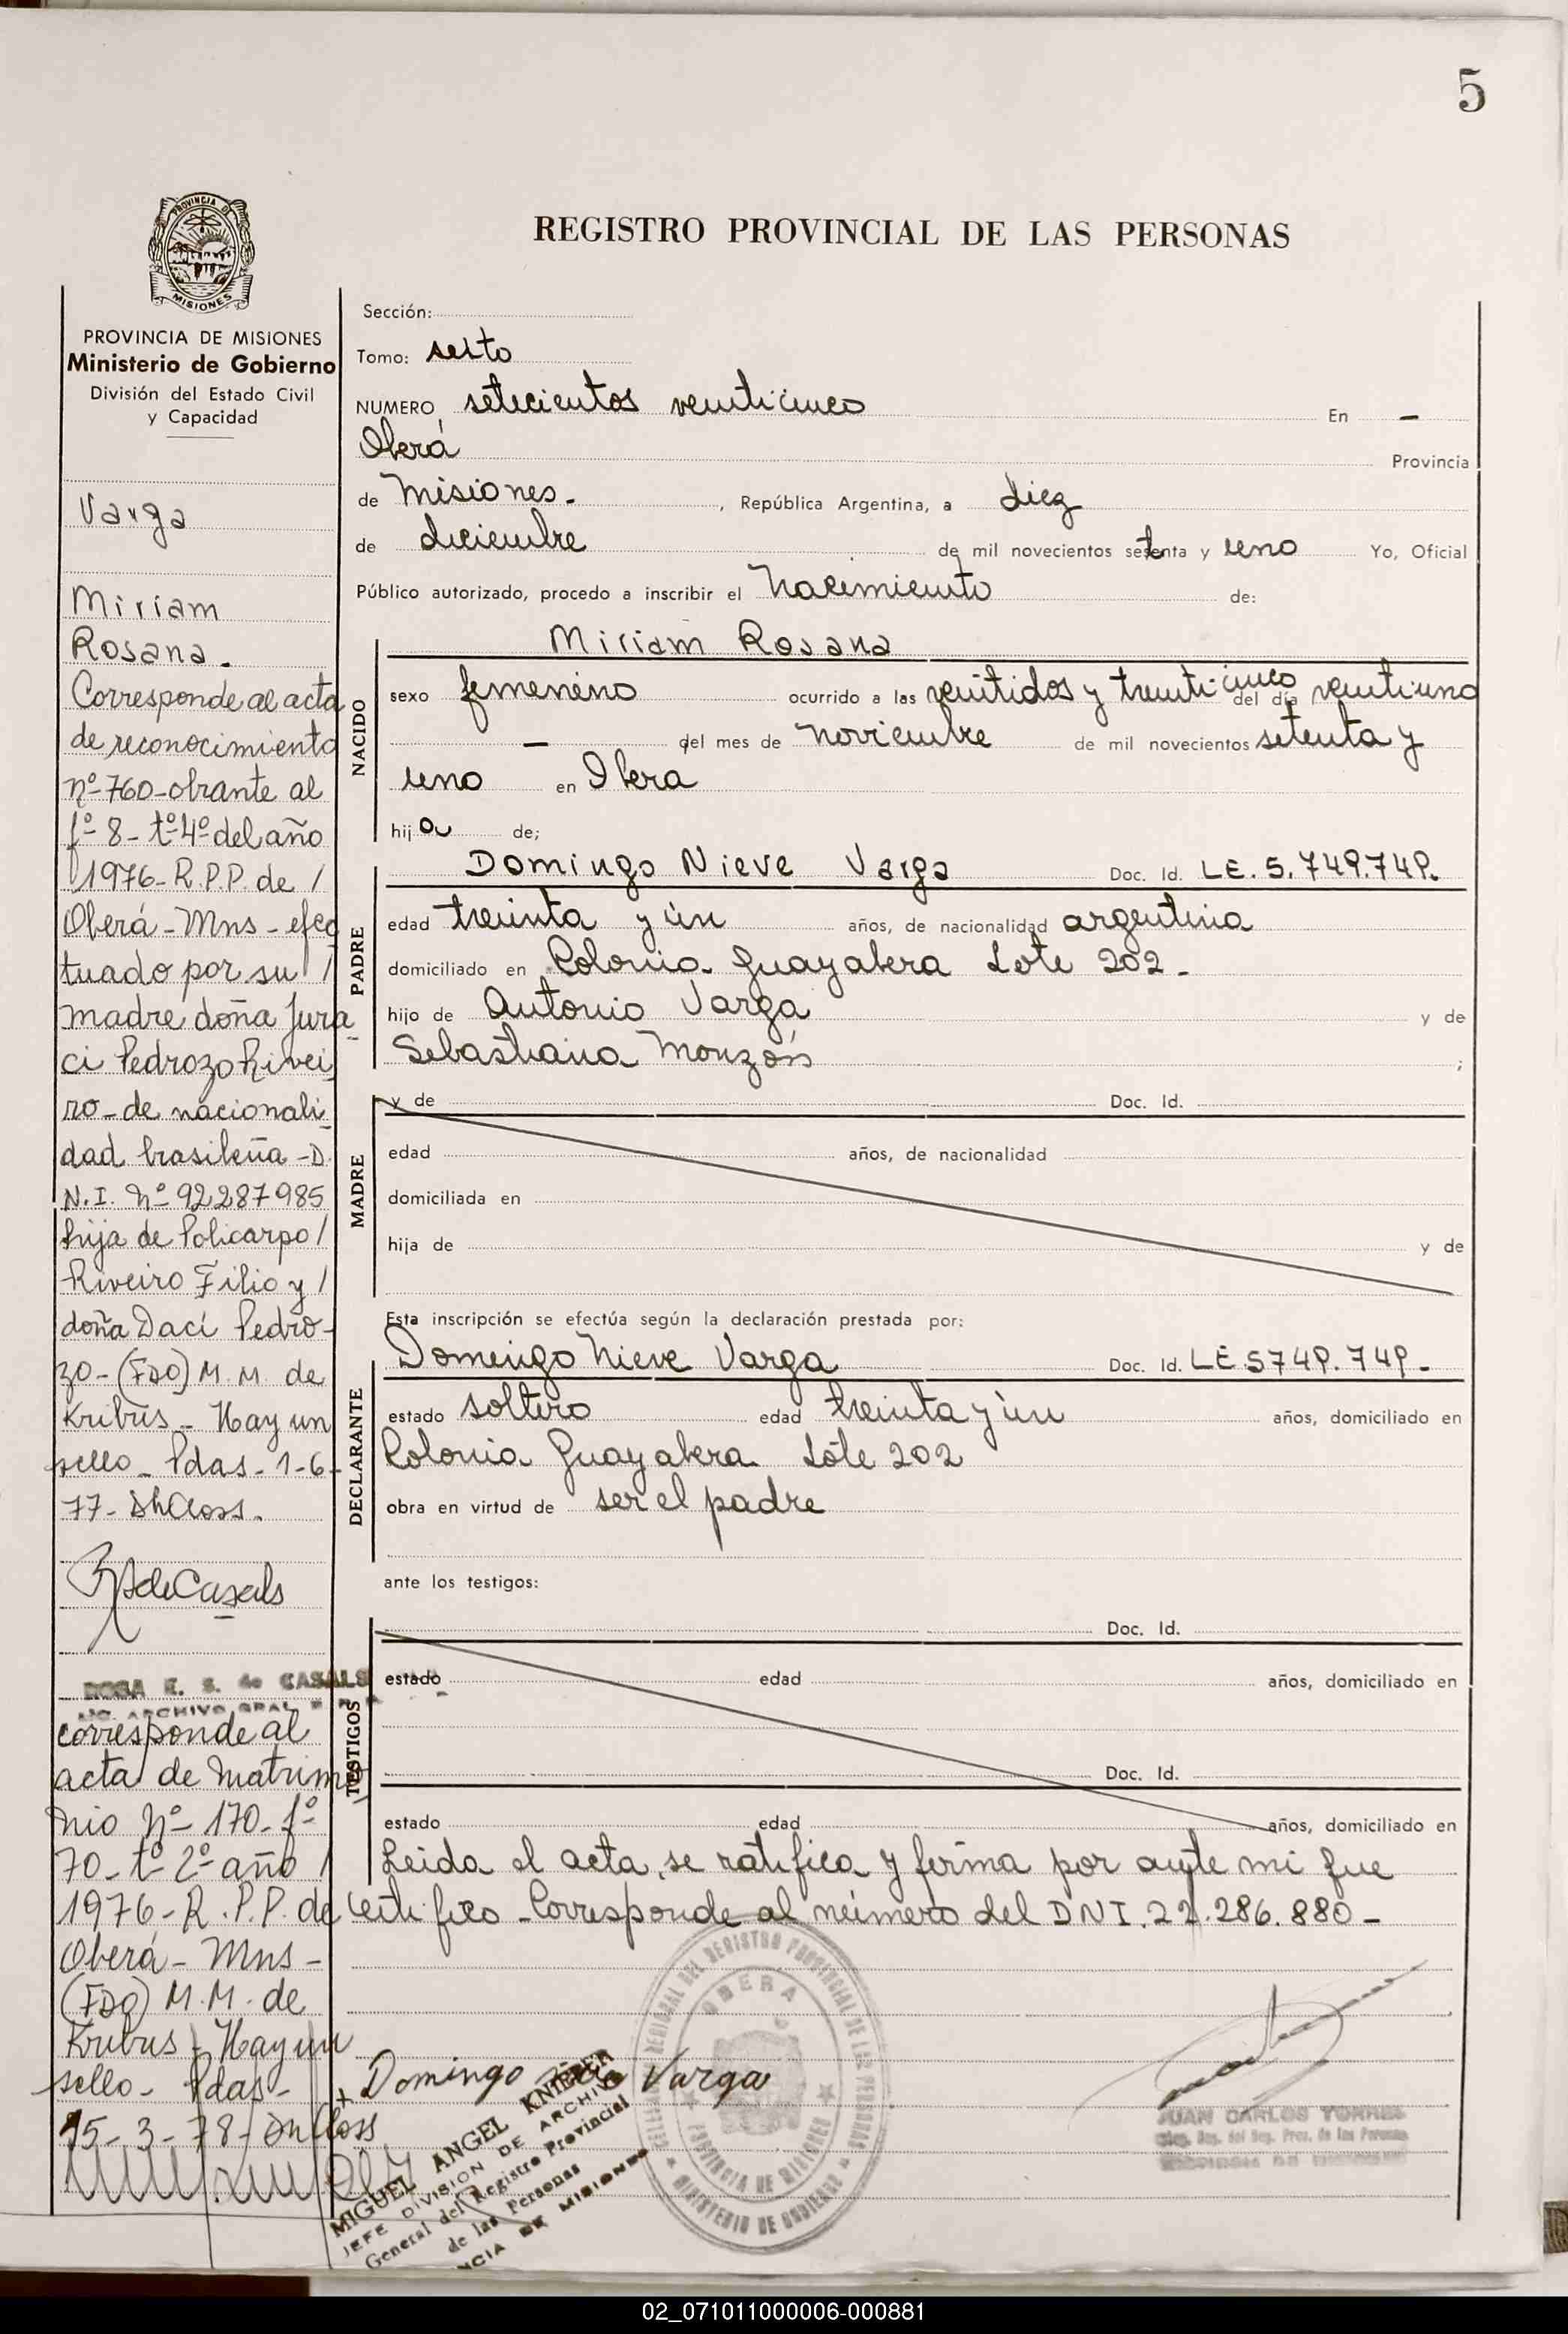 5
PROVINCIA DE
MISIONES
PROVINCIA DE MISIONES
Ministerio de Gobierno
División del Estado Civil
y Capacidad
Varga
Miriam
Rosana.
Corresponde al acta
de reconocimiento
nº 760-obrante al
fº 8- tº 4º del año
1976- R.P.P. de /
Oberá - Mns - efec
tuado por su /
madre doña Jura
ci Pedrozo Rivei
ro - de nacionali
dad brasileña - D.
N.I. Nº 92287985
hija de Policarpo /
Riveiro Filio y /
doña Daci Pedro-
zo - (FDO) M. M. de
Kribus - Hay un
sello - Pdas - 1-6-
77-
deCasals
ROSA E. S. de CASALS
ARCHIVO GRAL
corresponde al
acta de Matrimo
nio Nº 170- fº
70- tº 2º año /
1976- R.P.P. de
Oberá - Mns -
(FDO) M.M. de
Kribus - Hay un
sello - Pdas -
15-3-78-
REGISTRO PROVINCIAL DE LAS PERSONAS
Sección:
Tomo: sexto
NUMERO setecientos veinticinco En -
Oberá Provincia
de Misiones- , República Argentina, a diez
de diciembre de mil novecientos setenta y uno Yo, Oficial
Público autorizado, procedo a inscribir el Nacimiento de:
NACIDO
Miriam Rosana
sexo femenino ocurrido a las veintidos y treinticinco del día veintiuno
- del mes de noviembre de mil novecientos setenta y
uno en Obera
hija de;
PADRE
Domingo Nieve Varga Doc. Id. LE. 5.749.749.
edad treinta y un años, de nacionalidad argentina
domiciliado en Colonia Guayabera Lote 202-
hijo de Antonio Varga y de
Sebastiana Monzón ;
MADRE
y de Doc. Id.
edad años, de nacionalidad
domiciliada en
hija de y de
DECLARANTE
Esta inscripción se efectúa según la declaración prestada por:
Domingo Nieve Varga Doc. Id. LE 5749.749-
estado soltero edad treinta y un años, domiciliado en
Colonia Guayabera Lote 202
obra en virtud de ser el padre
ante los testigos:
TESTIGOS
Doc. Id.
estado edad años, domiciliado en
Doc. Id.
estado edad años, domiciliado en
Leida el acta, se ratifica y firma por ante mi que
certifico - Corresponde al número del DNI. 22.286.880-
Domingo Varga
MIGUEL ANGEL KNIEPER
JEFE DIVISION DE ARCHIVO
General del Registro Provincial
de las Personas
DE MISIONES
REGIONAL DEL REGISTRO PROVINCIAL DE LAS PERSONAS
OBERA
PROVINCIA DE MISIONES
MINISTERIO DE GOBIERNO
JUAN CARLOS TORRES
02_071011000006-000881